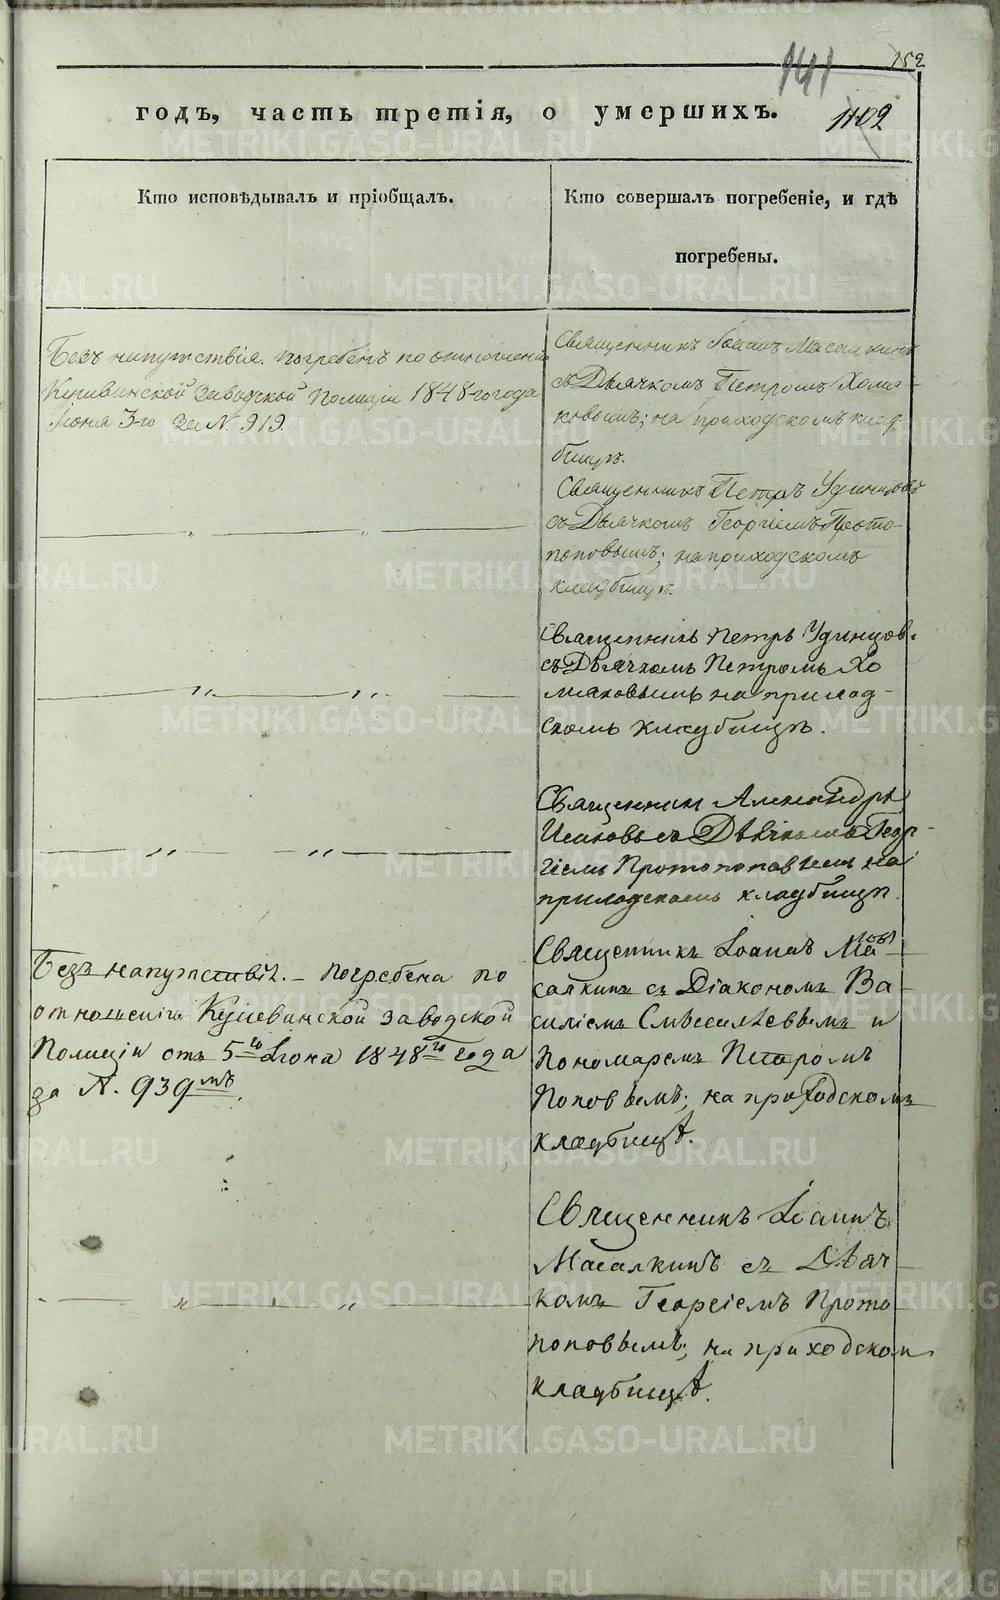 152
141
1102
годъ, часть третія, о умершихъ.
Кто исповѣдывалъ и пріобщалъ.
Кто совершалъ погребеніе, и гдѣ
погребены.
Безъ напутствія. Погребенъ по отношенію
Кушвинской Заводской Полиціи 1848-го года
Іюня 3-го за № 919.
Священникъ Іоаннъ Масалкинъ
съ Дьячкомъ Петромъ Хомя-
ковымъ; на приходскомъ клад-
бищѣ.
Священникъ Петръ Удинцовъ
съ Дьячкомъ Георгіемъ Прото-
поповымъ; на приходскомъ
кладбищѣ.
Священникъ Петръ Удинцовъ
съ Дьячкомъ Петромъ Хо
мяковымъ на приход-
скомъ кладбищѣ.
Священник Александръ
съ Дьячкомъ Геор-
гіемъ Протопоповымъ на
приходскомъ кладбищѣ.
Безъ напутствія. – Погребена по
отношенію Кушвинской Заводской
Полиціи отъ 5го Іюня 1848го года
за №. 939мъ.
Священникъ Іоаннъ Ма-
салкинъ съ Діакономъ Ва-
силіемъ и
Пономаремъ Петромъ
Поповымъ; на приходскомъ
кладбищѣ.
Священникъ Іоаннъ
Масалкинъ съ Дьяч-
комъ Георгіемъ Прото-
поповымъ; на приходском
кладбищѣ.
METRIKI.GASO-URAL.RU